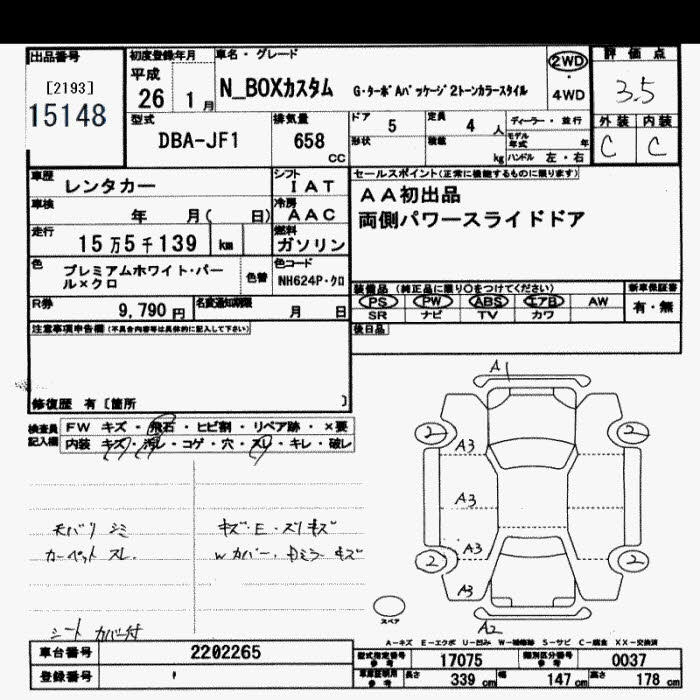 出品番号
[2193]
15148
初度登録年月
平成
26 1月
車名・グレード
N_BOXカスタム G・ターボAパッケージ2トーンカラースタイル
2WD
・
4WD
評価点
3.5
型式
DBA-JF1
排気量
658
CC
ドア 5
定員 4 人
形状
積載 kg
ディーラー・並行
モデル年式 年
ハンドル 左・右
外装 内装
C C
車歴
レンタカー
シフト
IAT
車検
年 月( 日)
冷房
AAC
走行
15万5千139 km
燃料
ガソリン
色
プレミアムホワイト・パール×クロ
色替
色コード
NH624P・クロ
R券
9,790円
名変通知期限
月 日
セールスポイント(正常に機能するものに限ります)
AA初出品
両側パワースライドドア
装備品 (純正品に限り○をつけてください)
新車保証書
PS PW ABS エアB AW
有・無
SR ナビ TV カワ
後日品
注意事項申告欄(不具合内容等は具体的に記入して下さい)
修復歴 有〔箇所 〕
検査員記入欄
FW キズ・飛石・ヒビ割・リペア跡・×要
内装 キズ・汚レ・コゲ・穴・スレ・キレ・破レ
天バリ シミ
カーペット スレ.
キズ・E・スリキズ
Wカバー・Dミラーキズ
シートカバー付
A1
2 2
A3
A3
A3
2 2
A3
A2
スペア
A-キズ E-エクボ U-凹み W-補修跡 S-サビ C-腐食 XX-交換済
車台番号
2202265
登録番号
型式指定番号
参考
17075
類別区分番号
参考
0037
車庫証明用
参考
長さ 339 cm
幅 147 cm
高さ 178 cm